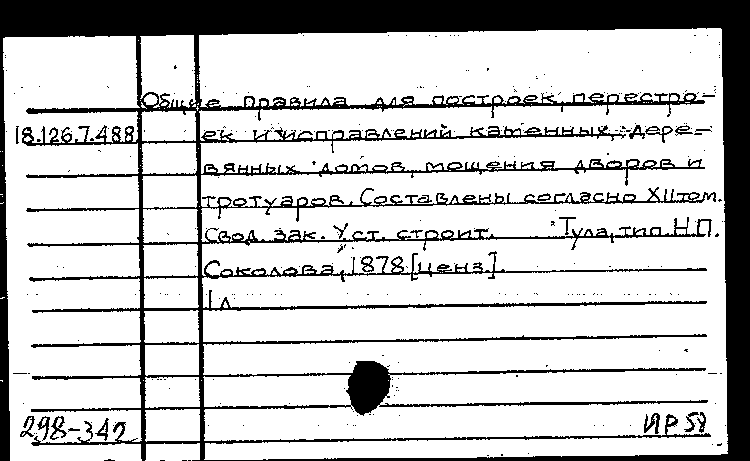 Общие правила для построек, перестро-
18.126.7.488 ек и исправлений каменных, дере-
вянных домов, мощения дворов и
тротуаров. Составлены согласно XII том.
Свод. зак. Уст. строит. Тула, тип. Н.П.
Соколова, 1878 [ценз.].
1 л.
298-342 ИР 58